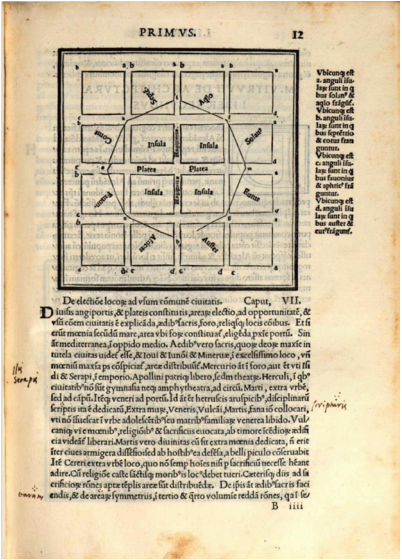 PRIMVS. 12
a b a b a b
Septē
Aq̃lo
Corus
Solan⁹
Insula
Insula
Platea
Platea
Insula
Insula
Fauon⁹
Eurus
Auster
Vbicunq̃ est
a. anguli isu
laꝝ sunt in q
bus solan⁹ &
aq̃lo frāgūt̃.
Vbicunq̃ est
b. anguli isu
laꝝ sunt in q
bus septētrio
& corus fran
guntur.
Vbicunq̃ est
c. anguli isu
laꝝ sunt in q
bus fauonius
& aphric⁹ frā
guntur.
Vbicunq̃ est
d. anguli isu
laꝝ sunt in q
bus auster &
eur⁹ frāgunt̃.
De electiōe locoꝝ ad vsum cōmunē ciuitatis. Caput, VII.
Diuisis angiportis, & plateis constitutis, areaꝝ electio, ad opportunitatē, &
vsū cōem ciuitatis ē explicāda, ædib⁹ sacris, foro, reliqsq̃ locis cōibus. Et si
erūt mœnia secūdū mare, area vbi foꝝ constituat̃, eligēda ꝓxie portū. Sin
āt mediterranea, ī oppido medio. Aedib⁹ vero sacris, quoꝝ deoꝝ maxīe in
tutela ciuitas videt̃ esse, & Ioui & Iunōi & Mineruæ, ī excelsissimo loco, vn̄
mœniū maxīa ps cōspiciat̃, areæ distribuāt̃. Mercurio āt ī foro, aut ēt vti Isi
di & Serapi, ī emporio. Apollini patriq̃ libero, secdm̄ theatꝝ. Herculi, ī qb⁹
ciuitatib⁹ nō sūt gymnasia neq̃ amphytheatra, ad circū. Marti, extra vrbē,
sed ad cāpū. Itēq̃ veneri ad portū. Id āt ēt hetruscis aruspicib⁹, disciplinaꝝ
scriptis ita ē dedicatū, Extra muꝝ, Veneris, Vulcāi, Martis, fana iō collocari,
vti nō īsuescat ī vrbe adolescētib⁹ seu matribusfamiliaꝝ venerea libido. Vul-
caniq̃ vi e mœnib⁹, religiōib⁹ & sacrificiis euocata, ab timore īcēdioꝝ ædifi
cia videāt̃ liberari. Martis vero diuinitas cū sit extra mœnia dedicata, n̄ erit
īter ciues armigera dissēsio, sed ab hostib⁹ ea defēsa, a belli piculo cōseruabit
Itē Cereri extra vrbē loco, quo nō semp hoīes nisi p sacrificiū necesse hēant
adire. Cū religiōe caste sāctisq̃ morib⁹ is loc⁹ debet tueri. Cæterisq̃ diis ad sa
crificioꝝ rōnes aptæ tēplis areæ sūt distribuēdæ. De ipsis āt ædib⁹ sacris faci
endis, & de areaꝝ symmetriis, ī tertio & q̃rto volumīe reddā rōnes, qa ī se
B iiii